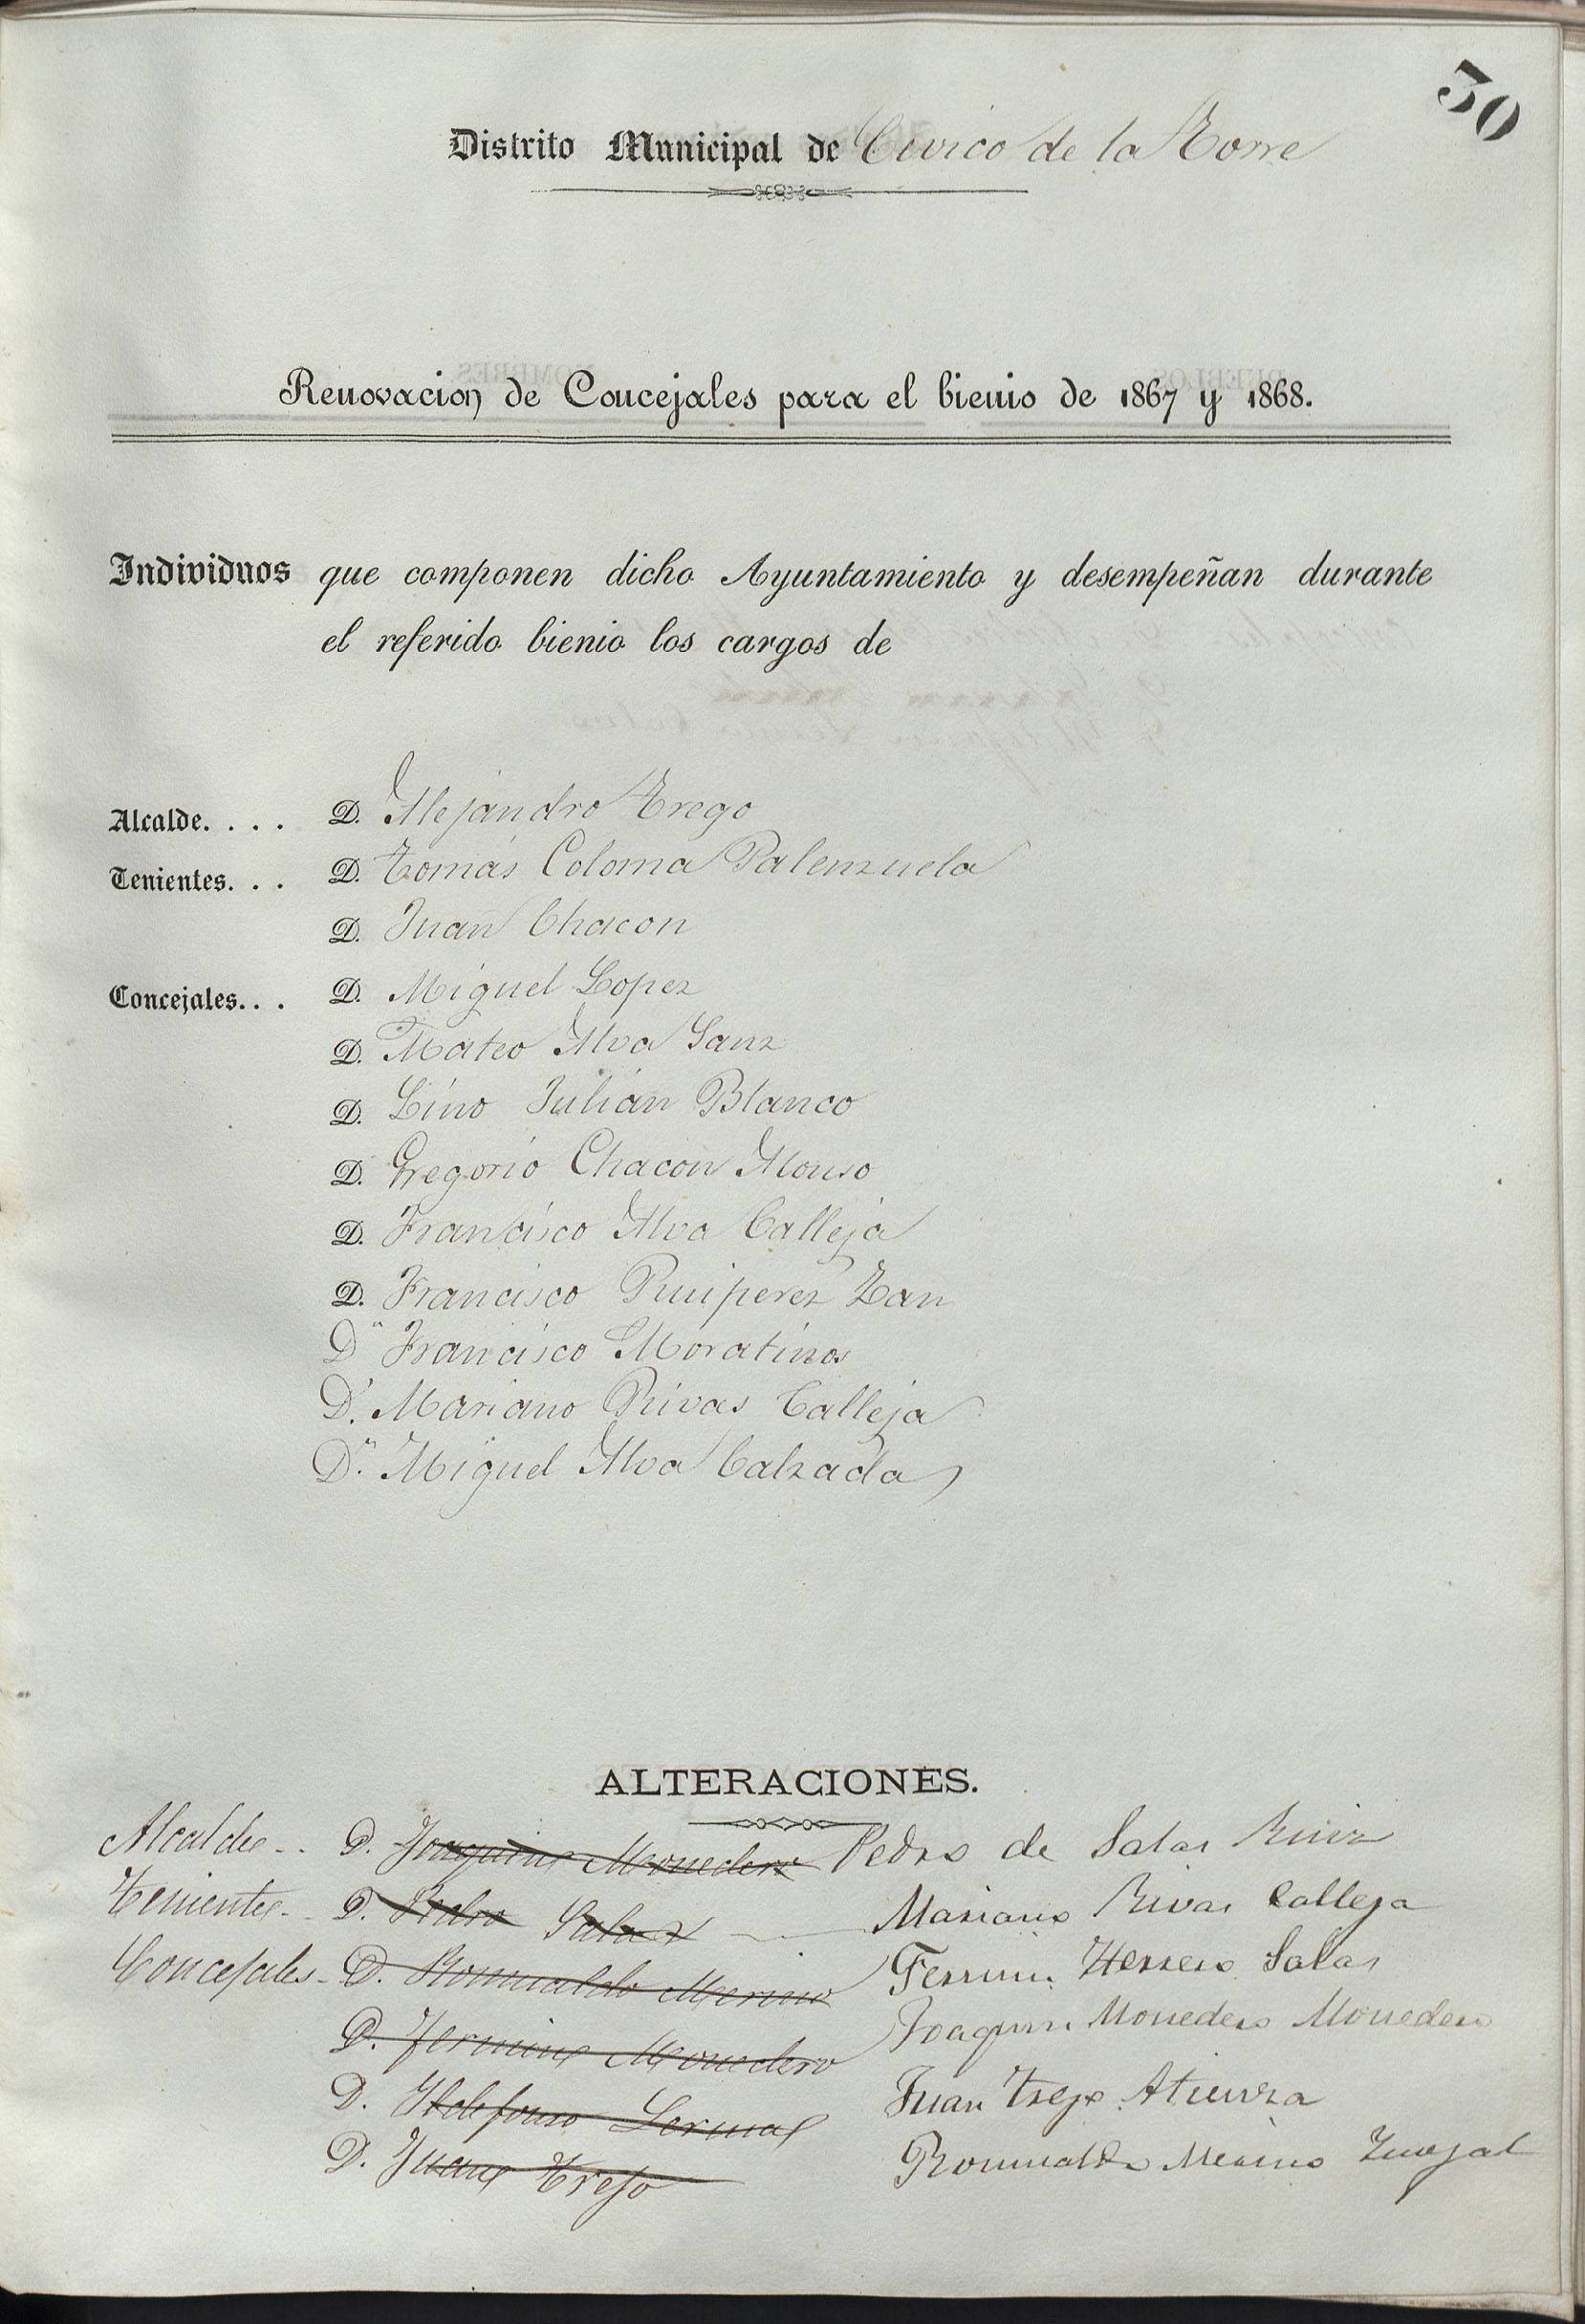 30
Distrito Municipal de Cevico de la Torre
Renovacion de Concejales para el bienio de 1867 y 1868.
Individuos que componen dicho Ayuntamiento y desempeñan durante
el referido bienio los cargos de
Alcalde. . . . D. Alejandro Trego
Tenientes. . . D. Tomás Coloma Palenzuela
D. Juan Chacon
Concejales. . . D. Miguel Lopez
D. Mateo Alva Sanz
D. Lino Julián Blanco
D. Gregorio Chacon Alonso
D. Francisco Alva Calleja
D. Francisco Ruiperez Zan
Dn Francisco Moratinos
D. Mariano Rivas Calleja
Dn. Miguel Alva Calzada
ALTERACIONES.
Alcalde . . D. Joaquin Monedero Pedro de Salas Ruiz
Tenientes . . D. Pedro Salas Mariano Rivas Calleja
Concejales - D. Romualdo Merino Fermin Herrero Salas
D. Fermin Monedero Joaquin Monedero Monedero
D. Ildefonso Juan Trejo Atienza
D. Juan Trejo Romualdo Merino